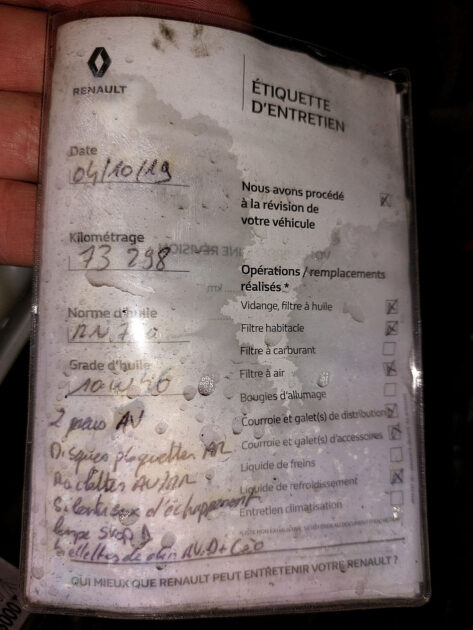 RENAULT
ÉTIQUETTE
D'ENTRETIEN
Date
04/10/19
Nous avons procédé
à la révision de
votre véhicule
Kilométrage
73 298
Opérations / remplacements
réalisés *
Norme d'huile
Vidange, filtre à huile
Filtre habitacle
Filtre à carburant
Grade d'huile
10W40
Filtre à air
Bougies d'allumage
2 pneus AV
Courroie et galet(s) de distribution
Disques plaquettes AR
Courroie et galet(s) d'accessoires
Raclettes AV/AR
Liquide de freins
Silencieux d'échappement
Liquide de refroidissement
Entretien climatisation
QUI MIEUX QUE RENAULT PEUT ENTRETENIR VOTRE RENAULT ?